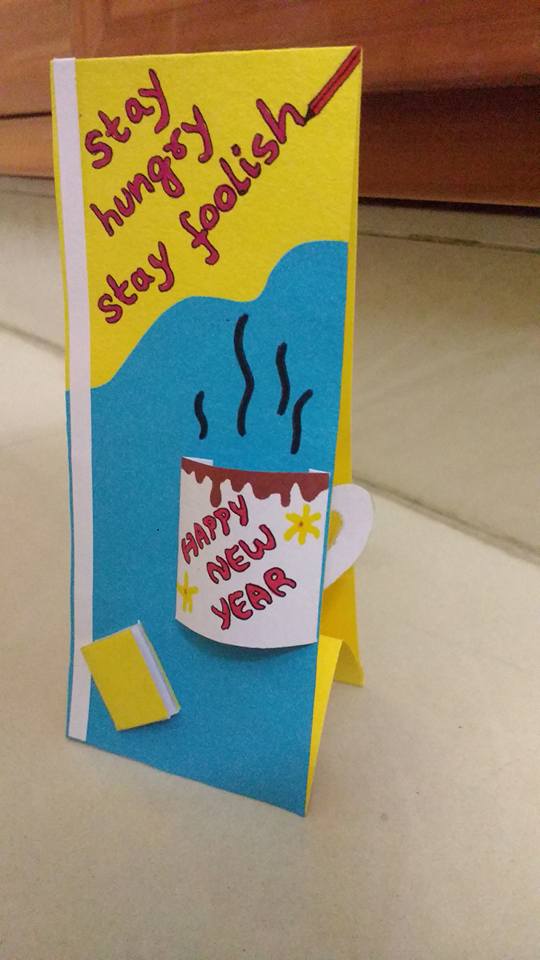 Stay
hungry
stay foolish
HAPPY
NEW
YEAR